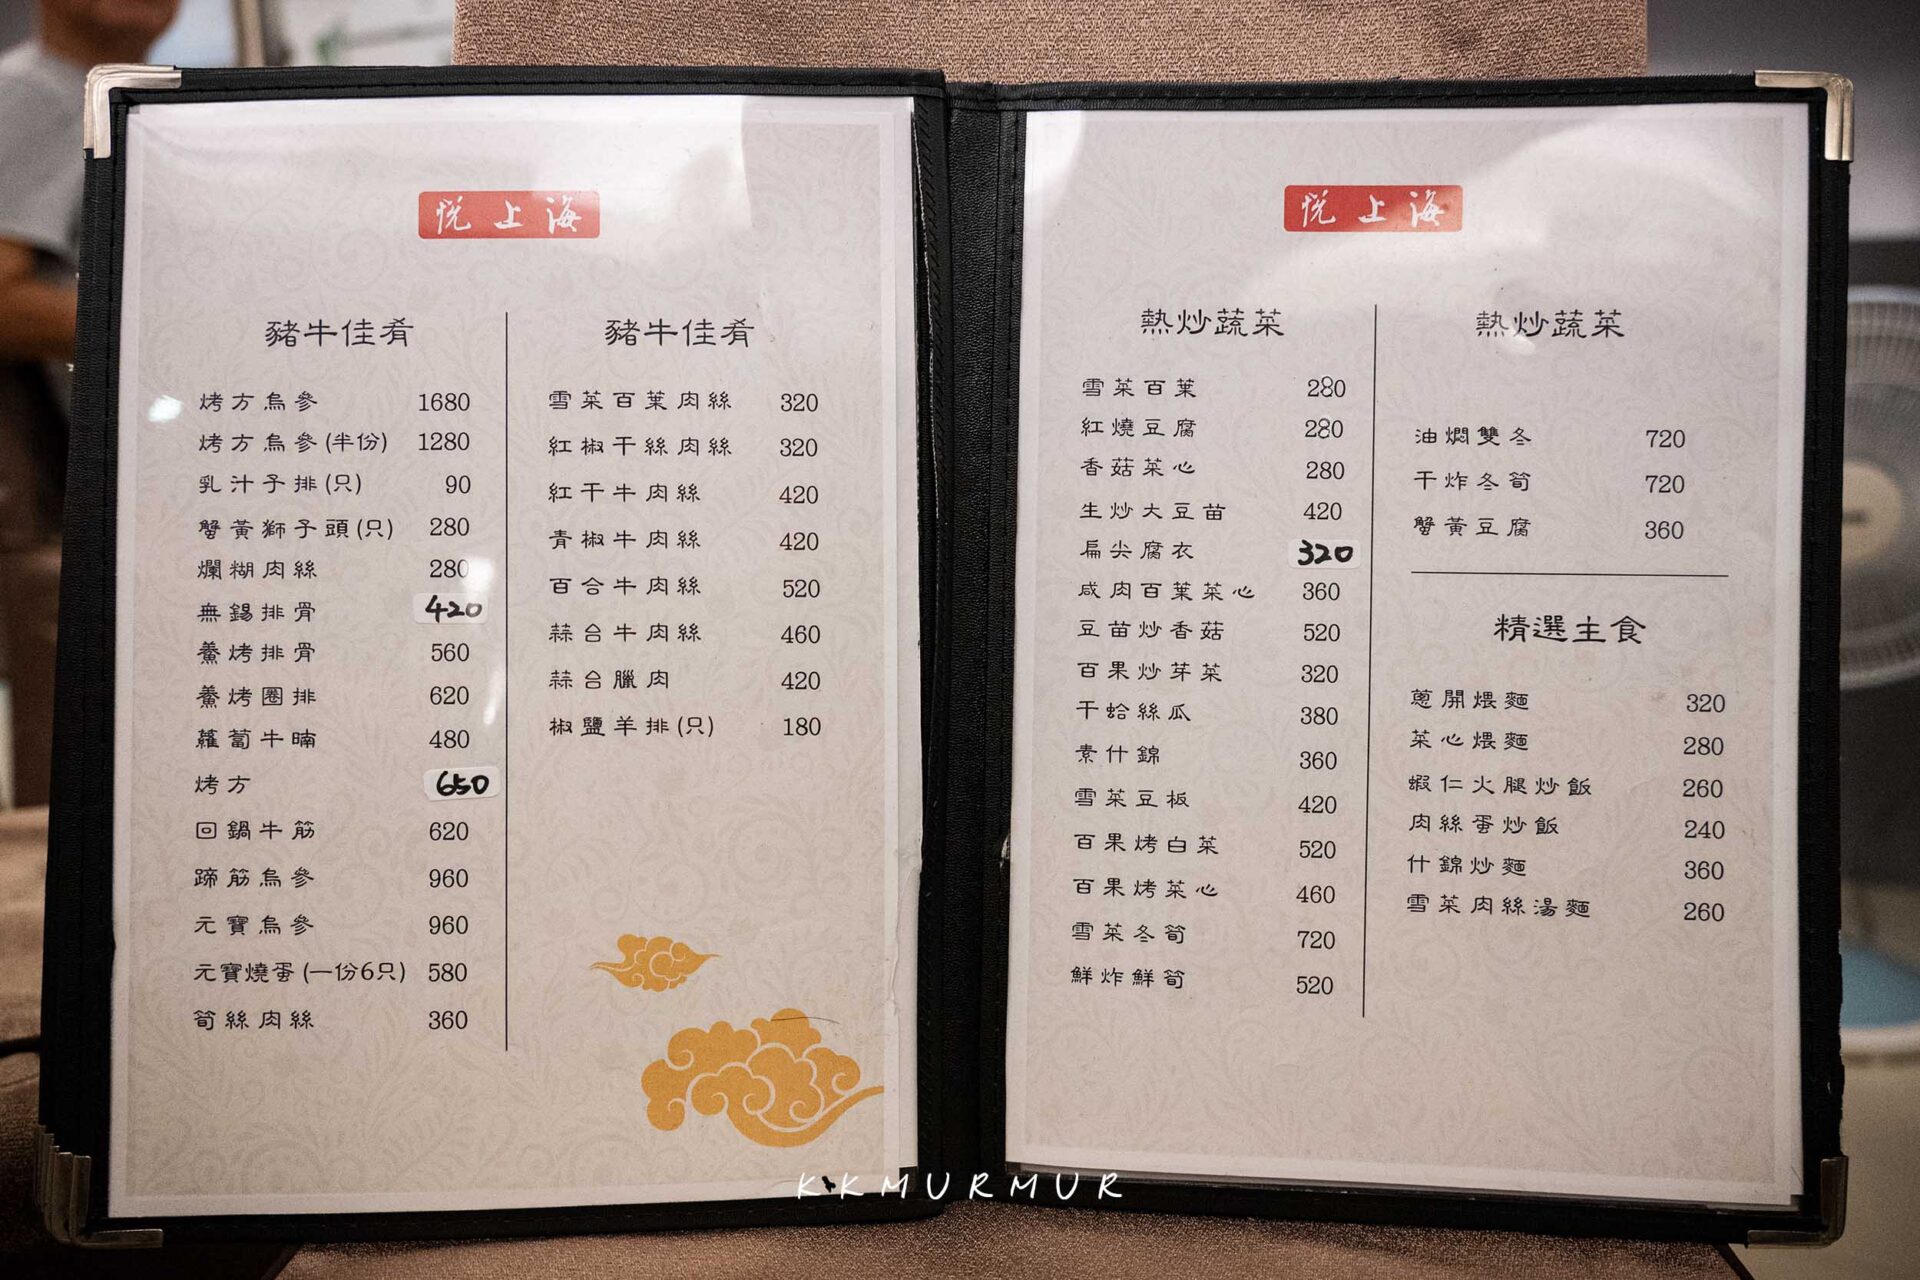 悅上海
豬牛佳肴
烤方烏參 1680
烤方烏參(半份) 1280
乳汁子排(只) 90
蟹黃獅子頭(只) 280
爛糊肉絲 280
無錫排骨 420
鯗烤排骨 560
鯗烤圈排 620
蘿蔔牛腩 480
烤方 650
回鍋牛筋 620
蹄筋烏參 960
元寶烏參 960
元寶燒蛋(一份6只) 580
筍絲肉絲 360
豬牛佳肴
雪菜百葉肉絲 320
紅椒干絲肉絲 320
紅干牛肉絲 420
青椒牛肉絲 420
百合牛肉絲 520
蒜台牛肉絲 460
蒜台臘肉 420
椒鹽羊排(只) 180
悅上海
熱炒蔬菜
雪菜百葉 280
紅燒豆腐 280
香菇菜心 280
生炒大豆苗 420
扁尖腐衣 320
咸肉百葉菜心 360
豆苗炒香菇 520
百果炒芽菜 320
干蛤絲瓜 380
素什錦 360
雪菜豆板 420
百果烤白菜 520
百果烤菜心 460
雪菜冬筍 720
鮮炸鮮筍 520
熱炒蔬菜
油燜雙冬 720
干炸冬筍 720
蟹黃豆腐 360
精選主食
蔥開煨麵 320
菜心煨麵 280
蝦仁火腿炒飯 260
肉絲蛋炒飯 240
什錦炒麵 360
雪菜肉絲湯麵 260
KKMURMUR